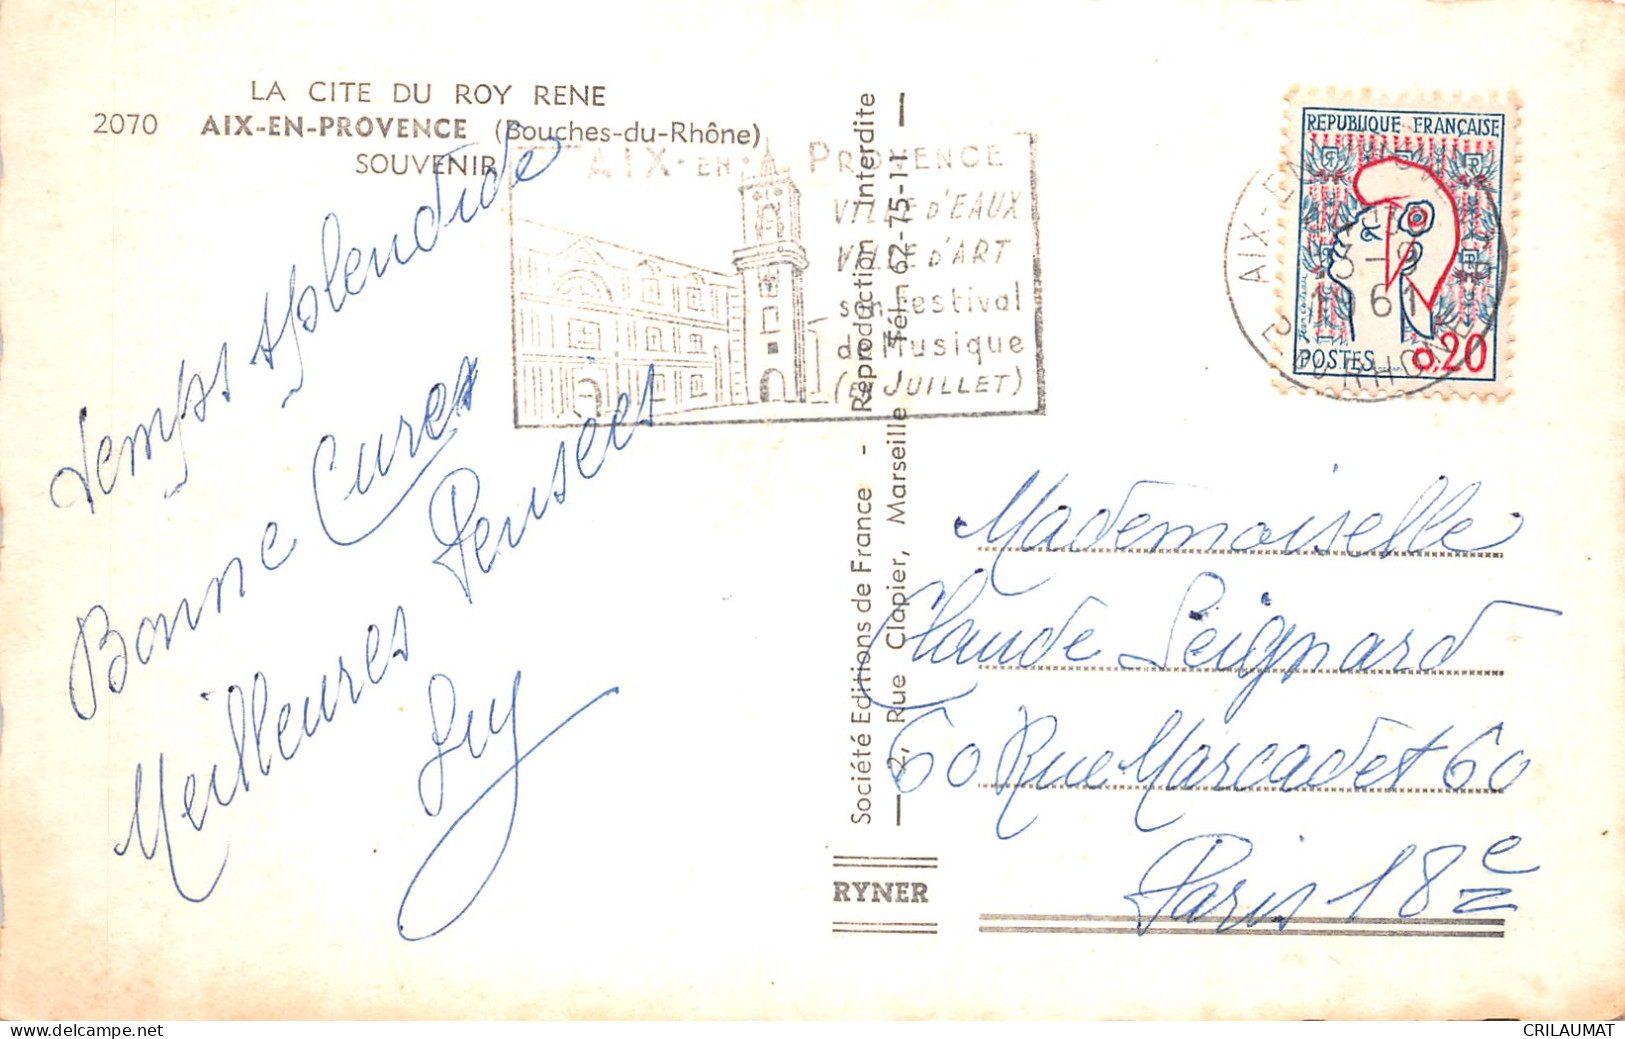 LA CITE DU ROY RENE
2070 AIX-EN-PROVENCE (Bouches-du-Rhône)
SOUVENIR
Temps splendide
Bonne Cures
Meilleures Pensées
Guy
AIX-EN-PROVENCE
VILLE D'EAUX
VILLE D'ART
son Festival
de Musique
(EN JUILLET)
Société Editions de France - Reproduction Interdite
— 2, Rue Clapier, Marseille - Tél. 62-75-11 —
RYNER
REPUBLIQUE FRANÇAISE
POSTES 0,20
AIX-EN-
1961
Mademoiselle
Claude Seignard
60 Rue Marcadet 60
Paris 18e
CRILAUMAT